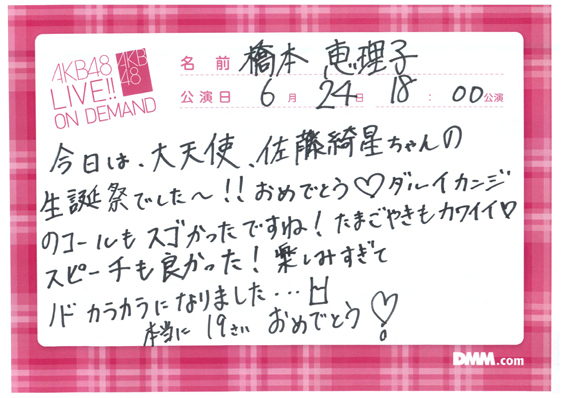 AKB48
LIVE!!
ON DEMAND
AKB
48
名前 橋本 恵理子
公演日 6月 24日 18:00公演
今日は、大天使、佐藤綺星ちゃんの
生誕祭でした〜!!おめでとう♡ダルイカンジ
のコールもスゴかったですね!たまごやきもカワイイ♡
スピーチも良かった!楽しみすぎて
ノドカラカラになりました…
本当に19さい おめでとう
DMM.com